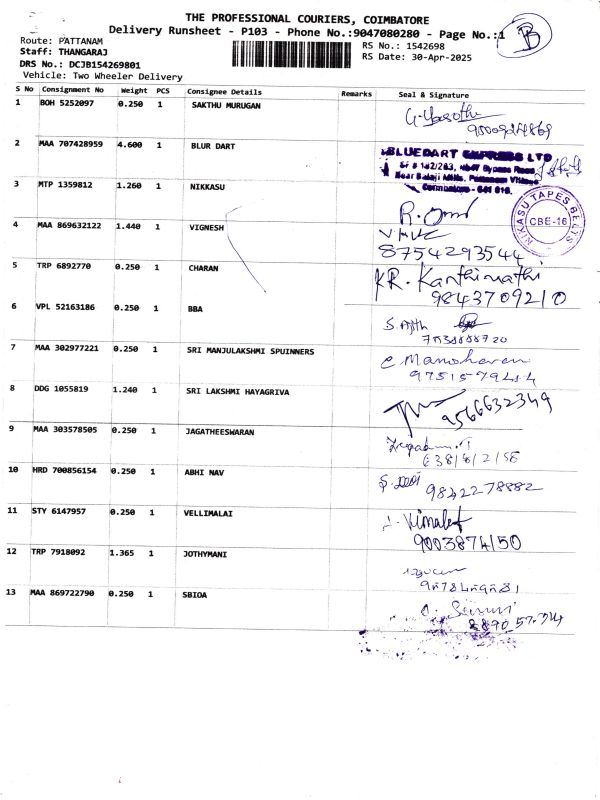 THE PROFESSIONAL COURIERS, COIMBATORE
Delivery Runsheet - P103 - Phone No.:9047080280 - Page No.:1
B
Route: PATTANAM
Staff: THANGARAJ
DRS No.: DCJB154269801
Vehicle: Two Wheeler Delivery
RS No.: 1542698
RS Date: 30-Apr-2025
S No Consignment No Weight PCS Consignee Details Remarks Seal & Signature
1 BOH 5252097 0.250 1 SAKTHU MURUGAN
2 MAA 707428959 4.600 1 BLUR DART
BLUEDART EXPRESS LTD
Coimbatore - 641 016.
3 MTP 1359812 1.260 1 NIKKASU
NIKASU TAPES BELTS
CBE-16
4 MAA 869632122 1.440 1 VIGNESH
8754293544
5 TRP 6892770 0.250 1 CHARAN
KR. Kanthimathi
9843709210
6 VPL 52163186 0.250 1 BBA
7 MAA 302977221 0.250 1 SRI MANJULAKSHMI SPUINNERS
C Manoharan
8 DDG 1055819 1.240 1 SRI LAKSHMI HAYAGRIVA
9566632349
9 MAA 303578505 0.250 1 JAGATHEESWARAN
10 HRD 700856154 0.250 1 ABHI NAV
9842278882
11 STY 6147957 0.250 1 VELLIMALAI
9003874150
12 TRP 7918092 1.365 1 JOTHYMANI
13 MAA 869722790 0.250 1 SBIOA